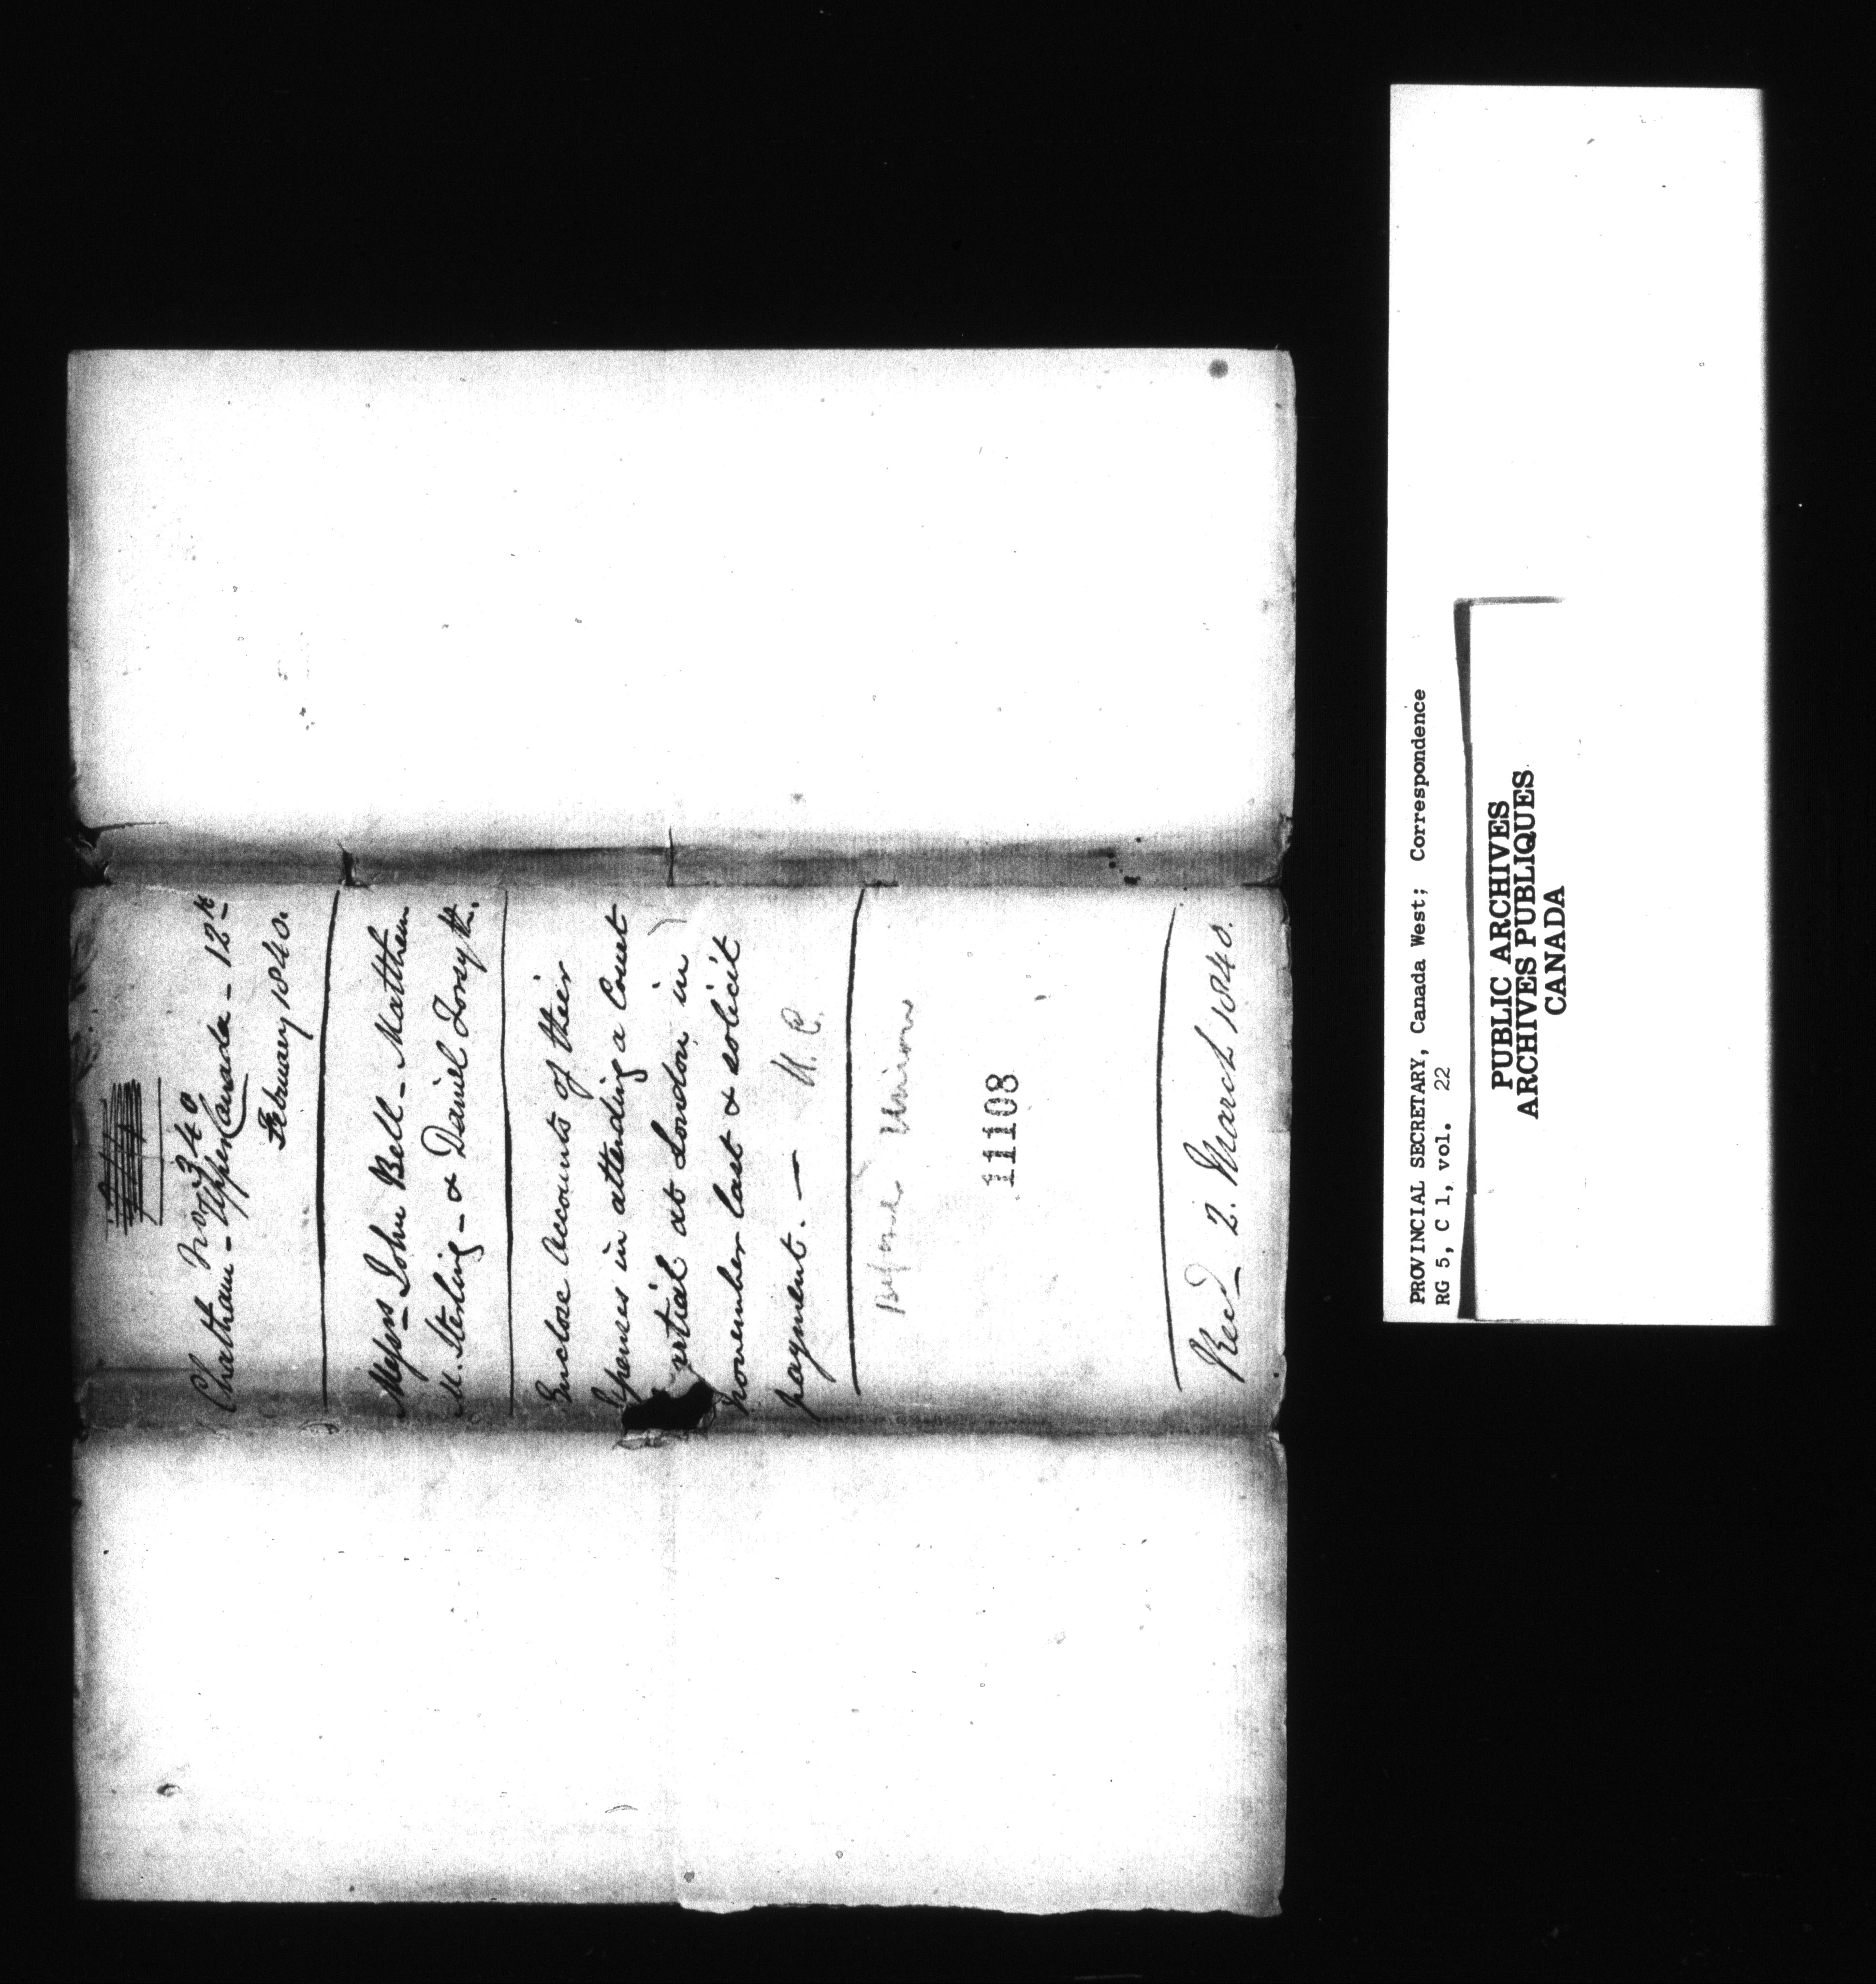 No 340
Chatham - Upper Canada - 12th
February 1840.
Messrs John Bell - Matthew
M. Sterling - & Daniel Forsyth.
Enclose Accounts of their
Expenses in attending a Court
rtial at London in
November last & solicit
payment. — U. C.
Before Union
11108
Recd 2. March 1840.
PROVINCIAL SECRETARY, Canada West; Correspondence
RG 5, C 1, vol. 22
PUBLIC ARCHIVES
ARCHIVES PUBLIQUES
CANADA